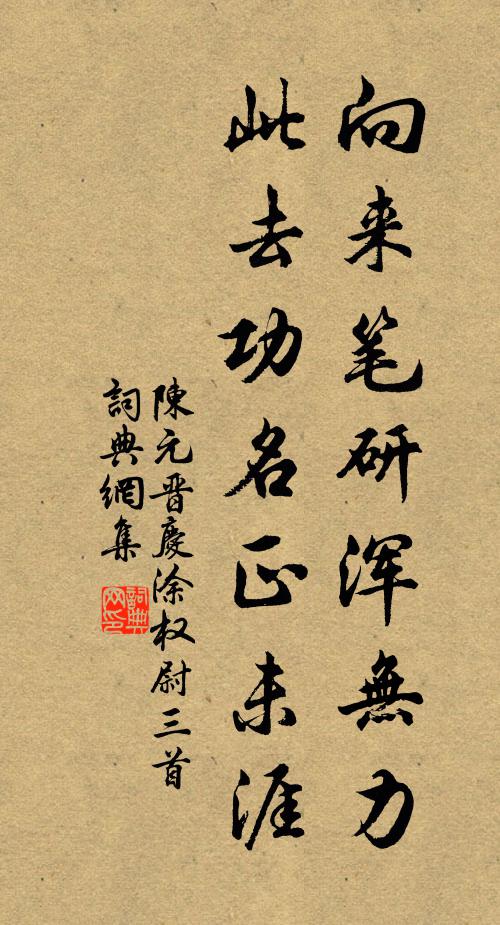 向来笔研浑無力
此去功名正未涯
陳元晋慶涂权尉三首
詞典網集
詞典網印